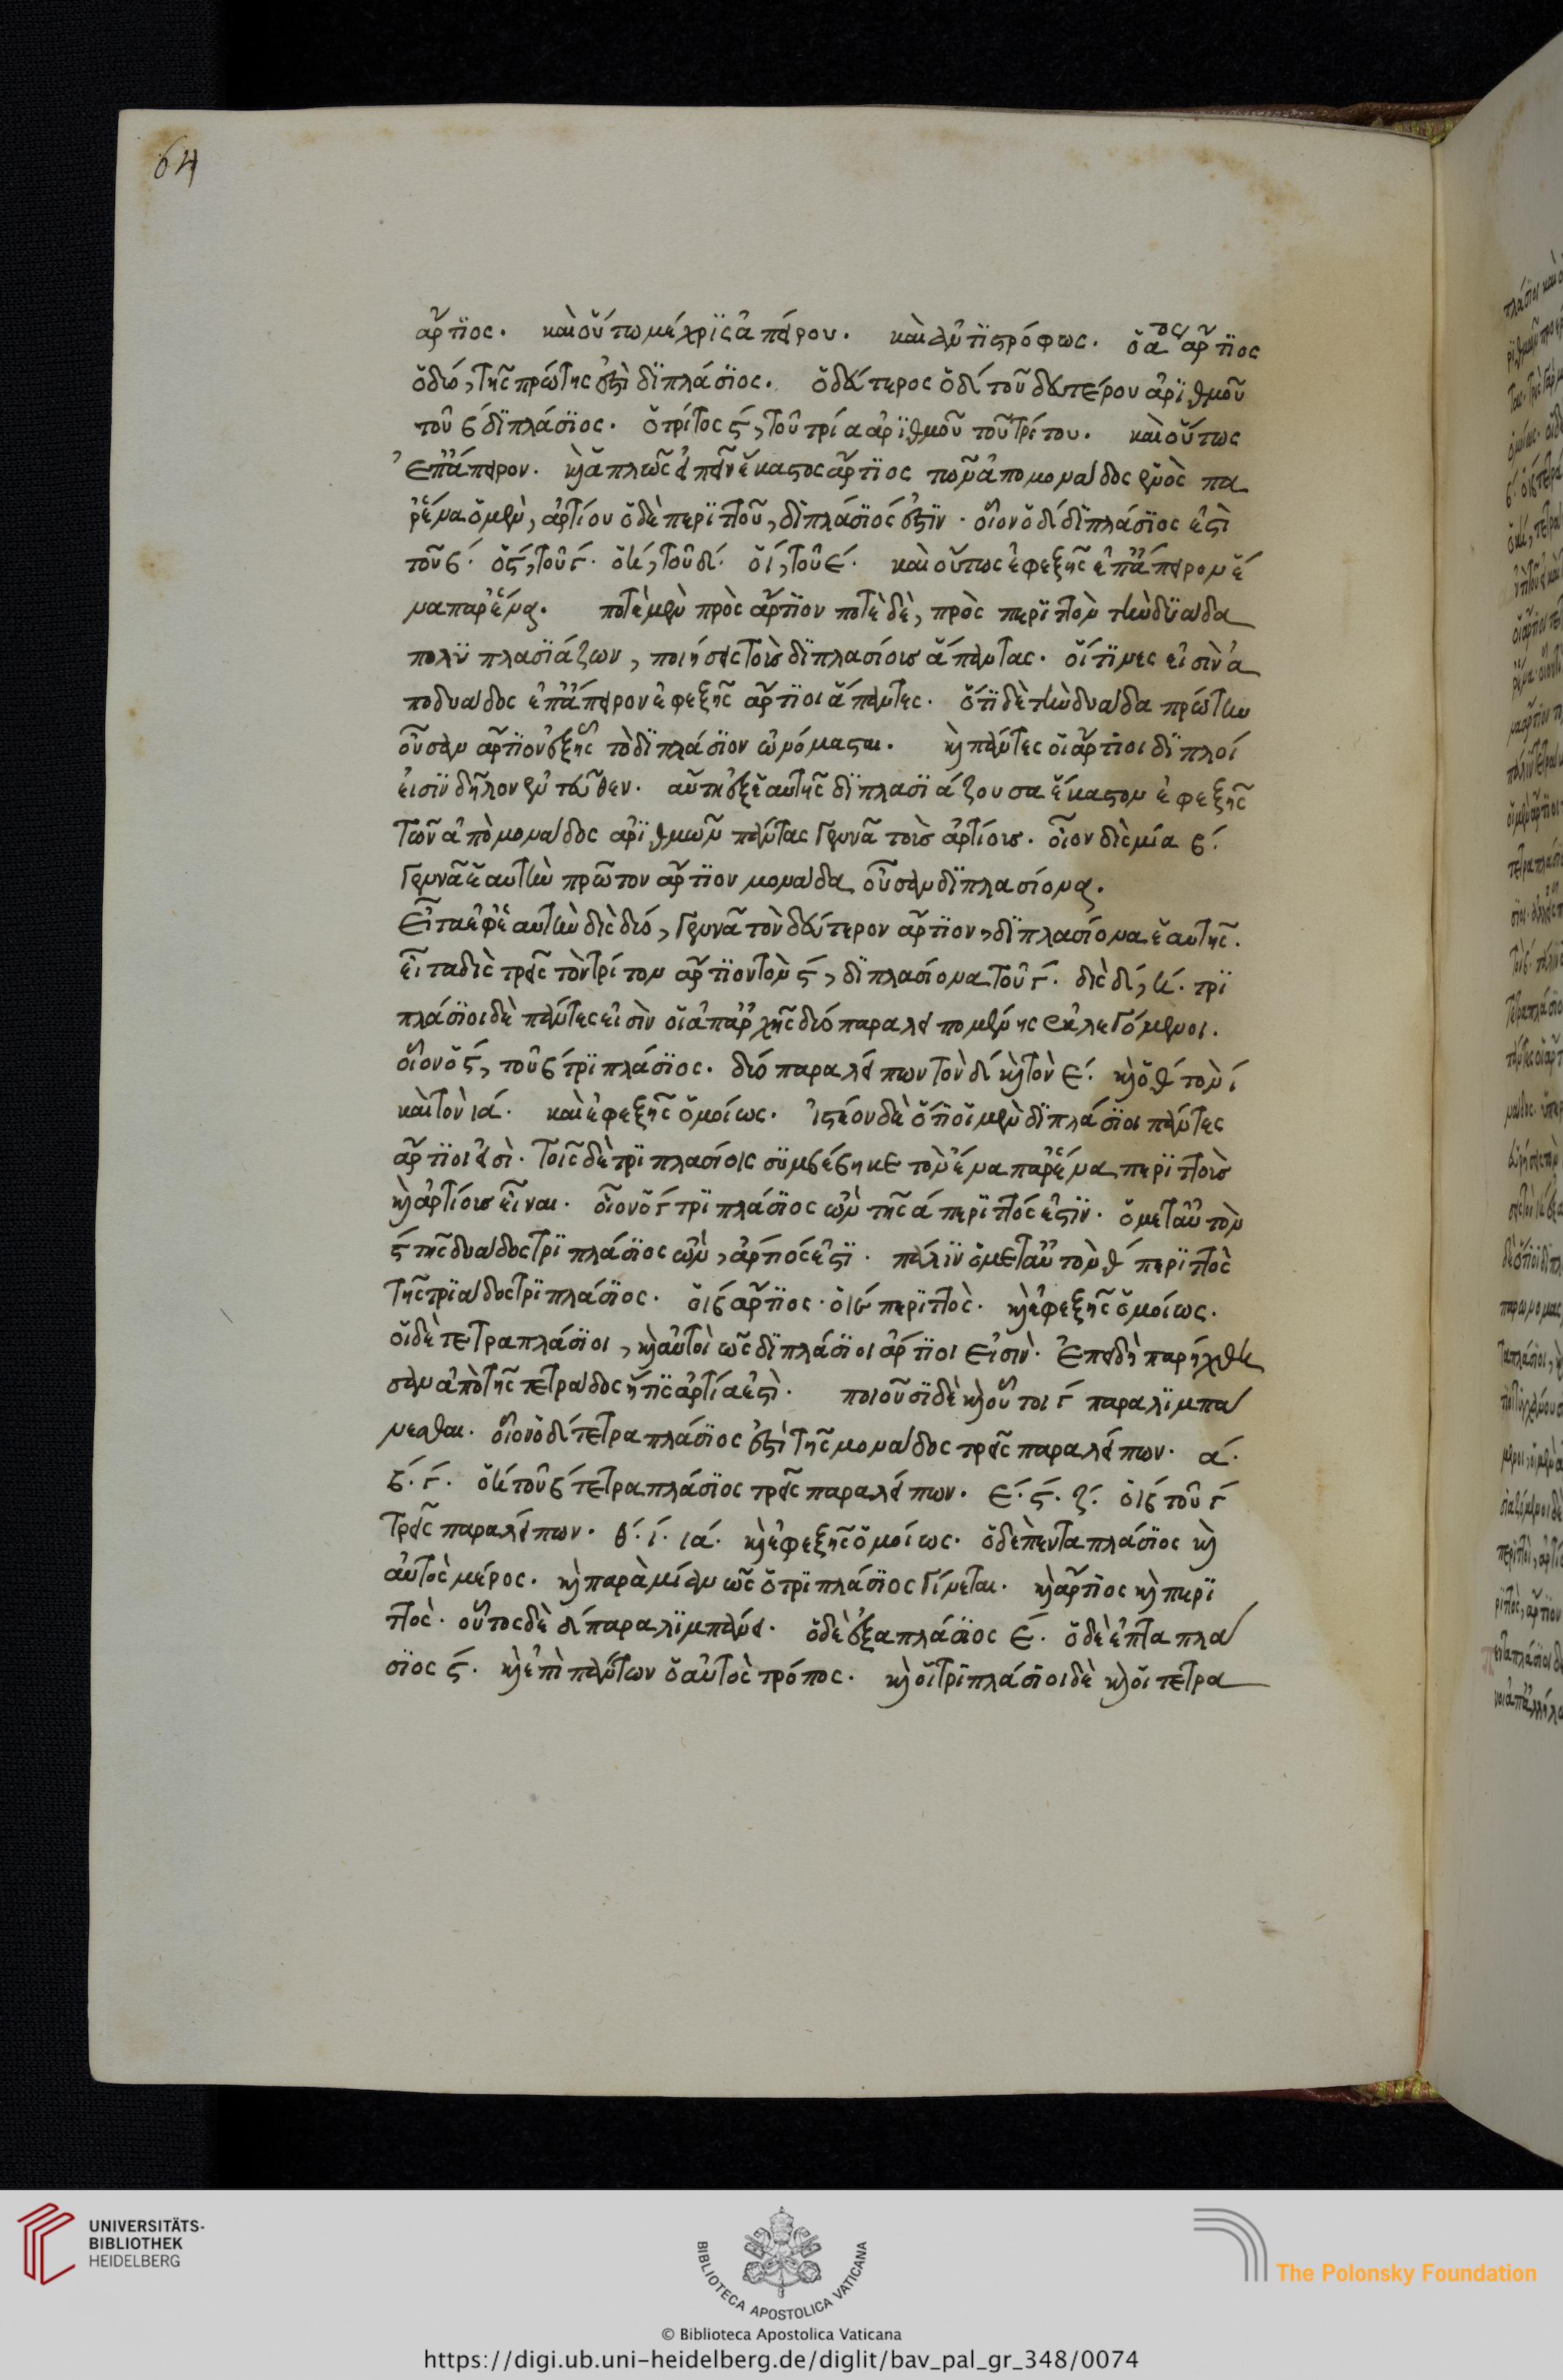 64
ἄρτιος. καὶ οὕτω μέχρις ἀπείρου. καὶ ἀντιστρόφως. ὁ αος ἄρτιος
ὁ δύο, τῆς πρώτης ἐστὶ διπλάσιος. ὁ δεύτερος ὁ δ΄ τοῦ δευτέρου ἀριθμοῦ
τοῦ β΄ διπλάσιος. ὁ τρίτος ϛ΄, τοῦ τρία ἀριθμοῦ τοῦ τρίτου. καὶ οὕτως
ἐπ' ἄπειρον. καὶ ἁπλῶς εἰπεῖν ἕκαστος ἄρτιος ποῦ ἀπο μοναδος ἑνὸς πα
ρ' ἕνα ὁ μὲν, ἀρτίου ὁ δὲ περιττοῦ, διπλάσιός ἐστιν. οἷον ὁ δ΄ διπλάσιος ἐστὶ
τοῦ β΄. ὁ ϛ΄, τοῦ γ΄. ὁ η΄, τοῦ δ΄. ὁ ι΄, τοῦ ε΄. καὶ οὕτως ἐφεξῆς ἐπ' ἄπειρον ἕ
να παρ' ἕνα. ποτὲ μὲν πρὸς ἄρτιον ποτὲ δὲ, πρὸς περιττὸν τὴν δυάδα
πολυπλασιάζων, ποιήσεις τοὺς διπλασίους ἅπαντας. οἵτινες εἰσὶν ἀ
πο δυάδος ἐπ' ἄπειρον ἐφεξῆς ἄρτιοι ἅπαντες. ὅτι δὲ τὴν δυάδα πρώτην
οὖσαν ἄρτιον ἐξ ἧς τὸ διπλάσιον ὠνόμασται. καὶ πάντες οἱ ἄρτιοι διπλοί
εἰσιν δῆλον ἐντεῦθεν. αὕτη ἐξ ἑαυτῆς διπλασιάζουσα ἕκαστον ἐφεξῆς
τῶν ἀπὸ μοναδος ἀριθμῶν πάντας γεννᾶ τοὺς ἀρτίους. οἷον δὶς μία β΄.
γεννᾶ ἑαυτὴν πρῶτον ἄρτιον μονάδα οὖσαν διπλασίονα.
Εἶτα ἐφ' ἑαυτὴν δὶς δύο, γεννᾶ τὸν δεύτερον ἄρτιον, διπλασίονα ἑαυτῆς.
εἶτα δὶς τρεῖς τὸν τρίτον ἄρτιον τὸν ϛ΄, διπλασίονα τοῦ γ΄. δὶς δ΄, η΄. τρι
πλάσιοι δὲ πάντες εἰσὶν οἱ ἀπ' ἀρχῆς δύο παρὰ λειπομένης ἐκλεγόμενοι.
οἷον ὁ ϛ΄, τοῦ β΄ τριπλάσιος. δύο παραλείπων τὸν δ΄ καὶ τὸν ε΄. καὶ ὁ θ΄ τὸν ι΄
καὶ τὸν ια΄. καὶ ἐφεξῆς ὁμοίως. ἰστέον δὲ ὅτι οἱ μὲν διπλάσιοι πάντες
ἄρτιοι εἰσὶ. τοῖς δὲ τριπλασίοις συμβέβηκε τὸν ἕνα παρ' ἕνα περιττοὺς
καὶ ἀρτίους εἶναι. οἷον ὁ γ΄ τριπλάσιος ὢν τῆς α΄ περιττός ἐστιν. ὁ μετ' αὐτὸν
ϛ΄ τῆς δυάδος τριπλάσιος ὢν, ἄρτιός ἐστι. πάλιν ὁ μετ' αὐτὸν θ΄ περιττὸς
τῆς τριάδος τριπλάσιος. ὁ ιβ΄ ἄρτιος. ὁ ιε΄ περιττὸς. καὶ ἐφεξῆς ὁμοίως.
οἱ δὲ τετραπλάσιοι, καὶ αὐτοὶ ὡς διπλάσιοι ἄρτιοι εἰσὶν. ἐπειδὴ παρήχθη
σαν ἀπὸ τῆς τετράδος ἥτις ἀρτία ἐστὶ. ποιοῦσι δὲ καὶ οὗτοι γ΄ παραλιμπά
νεσθαι. οἷον ὁ δ΄ τετραπλάσιος ἐστὶ τῆς μοναδος τρεῖς παραλείπων. α΄.
β΄. γ΄. ὁ η΄ τοῦ β΄ τετραπλάσιος τρεῖς παραλείπων. ε΄. ϛ΄. ζ΄. ὁ ιβ΄ τοῦ γ΄
τρεῖς παραλείπων. θ΄. ι΄. ια΄. καὶ ἐφεξῆς ὁμοίως. ὁ δὲ πενταπλάσιος καὶ
αὐτὸς μέρος. καὶ παρὰ μίαν ὡς ὁ τριπλάσιος γίνεται. καὶ ἄρτιος καὶ περι
ττὸς. οὗτος δὲ δ΄ παραλιμπάνει. ὁ δὲ ἑξαπλάσιος ε΄. ὁ δὲ ἑπταπλά
σιος ϛ΄. καὶ ἐπὶ πάντων ὁ αὐτὸς τρόπος. καὶ οἱ τριπλάσιοι δὲ καὶ οἱ τετρα
UNIVERSITÄTS-
BIBLIOTHEK
HEIDELBERG
BIBLIOTECA APOSTOLICA VATICANA
The Polonsky Foundation
© Biblioteca Apostolica Vaticana
https://digi.ub.uni-heidelberg.de/diglit/bav_pal_gr_348/0074